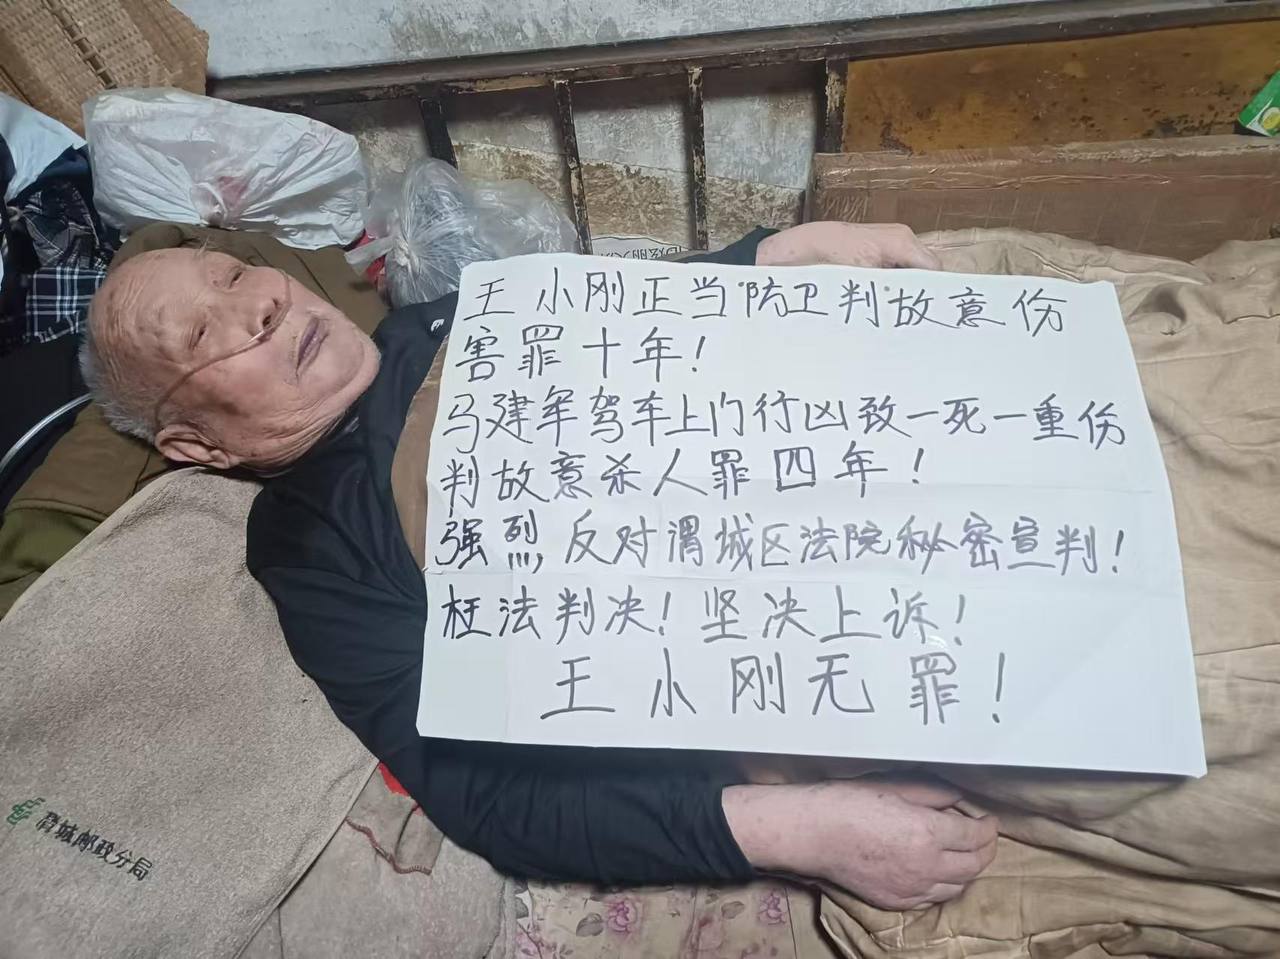 王小刚正当防卫判故意伤
害罪十年！
马建军驾车上门行凶致一死一重伤
判故意杀人罪四年！
强烈反对渭城区法院秘密宣判！
枉法判决！坚决上诉！
王小刚无罪！
渭城邮政分局